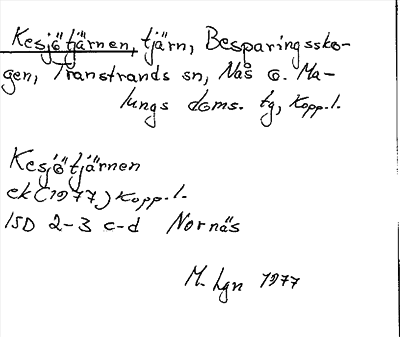 Kesjötjärnen, tjärn, Besparingssko-
gen, Transtrands sn, Nås o. Ma-
lungs doms. tg, Kopp. l.
Kesjötjärnen
ek (1977) Kopp. l.
15D 2-3 c-d Nornäs
M. Lgn 1977